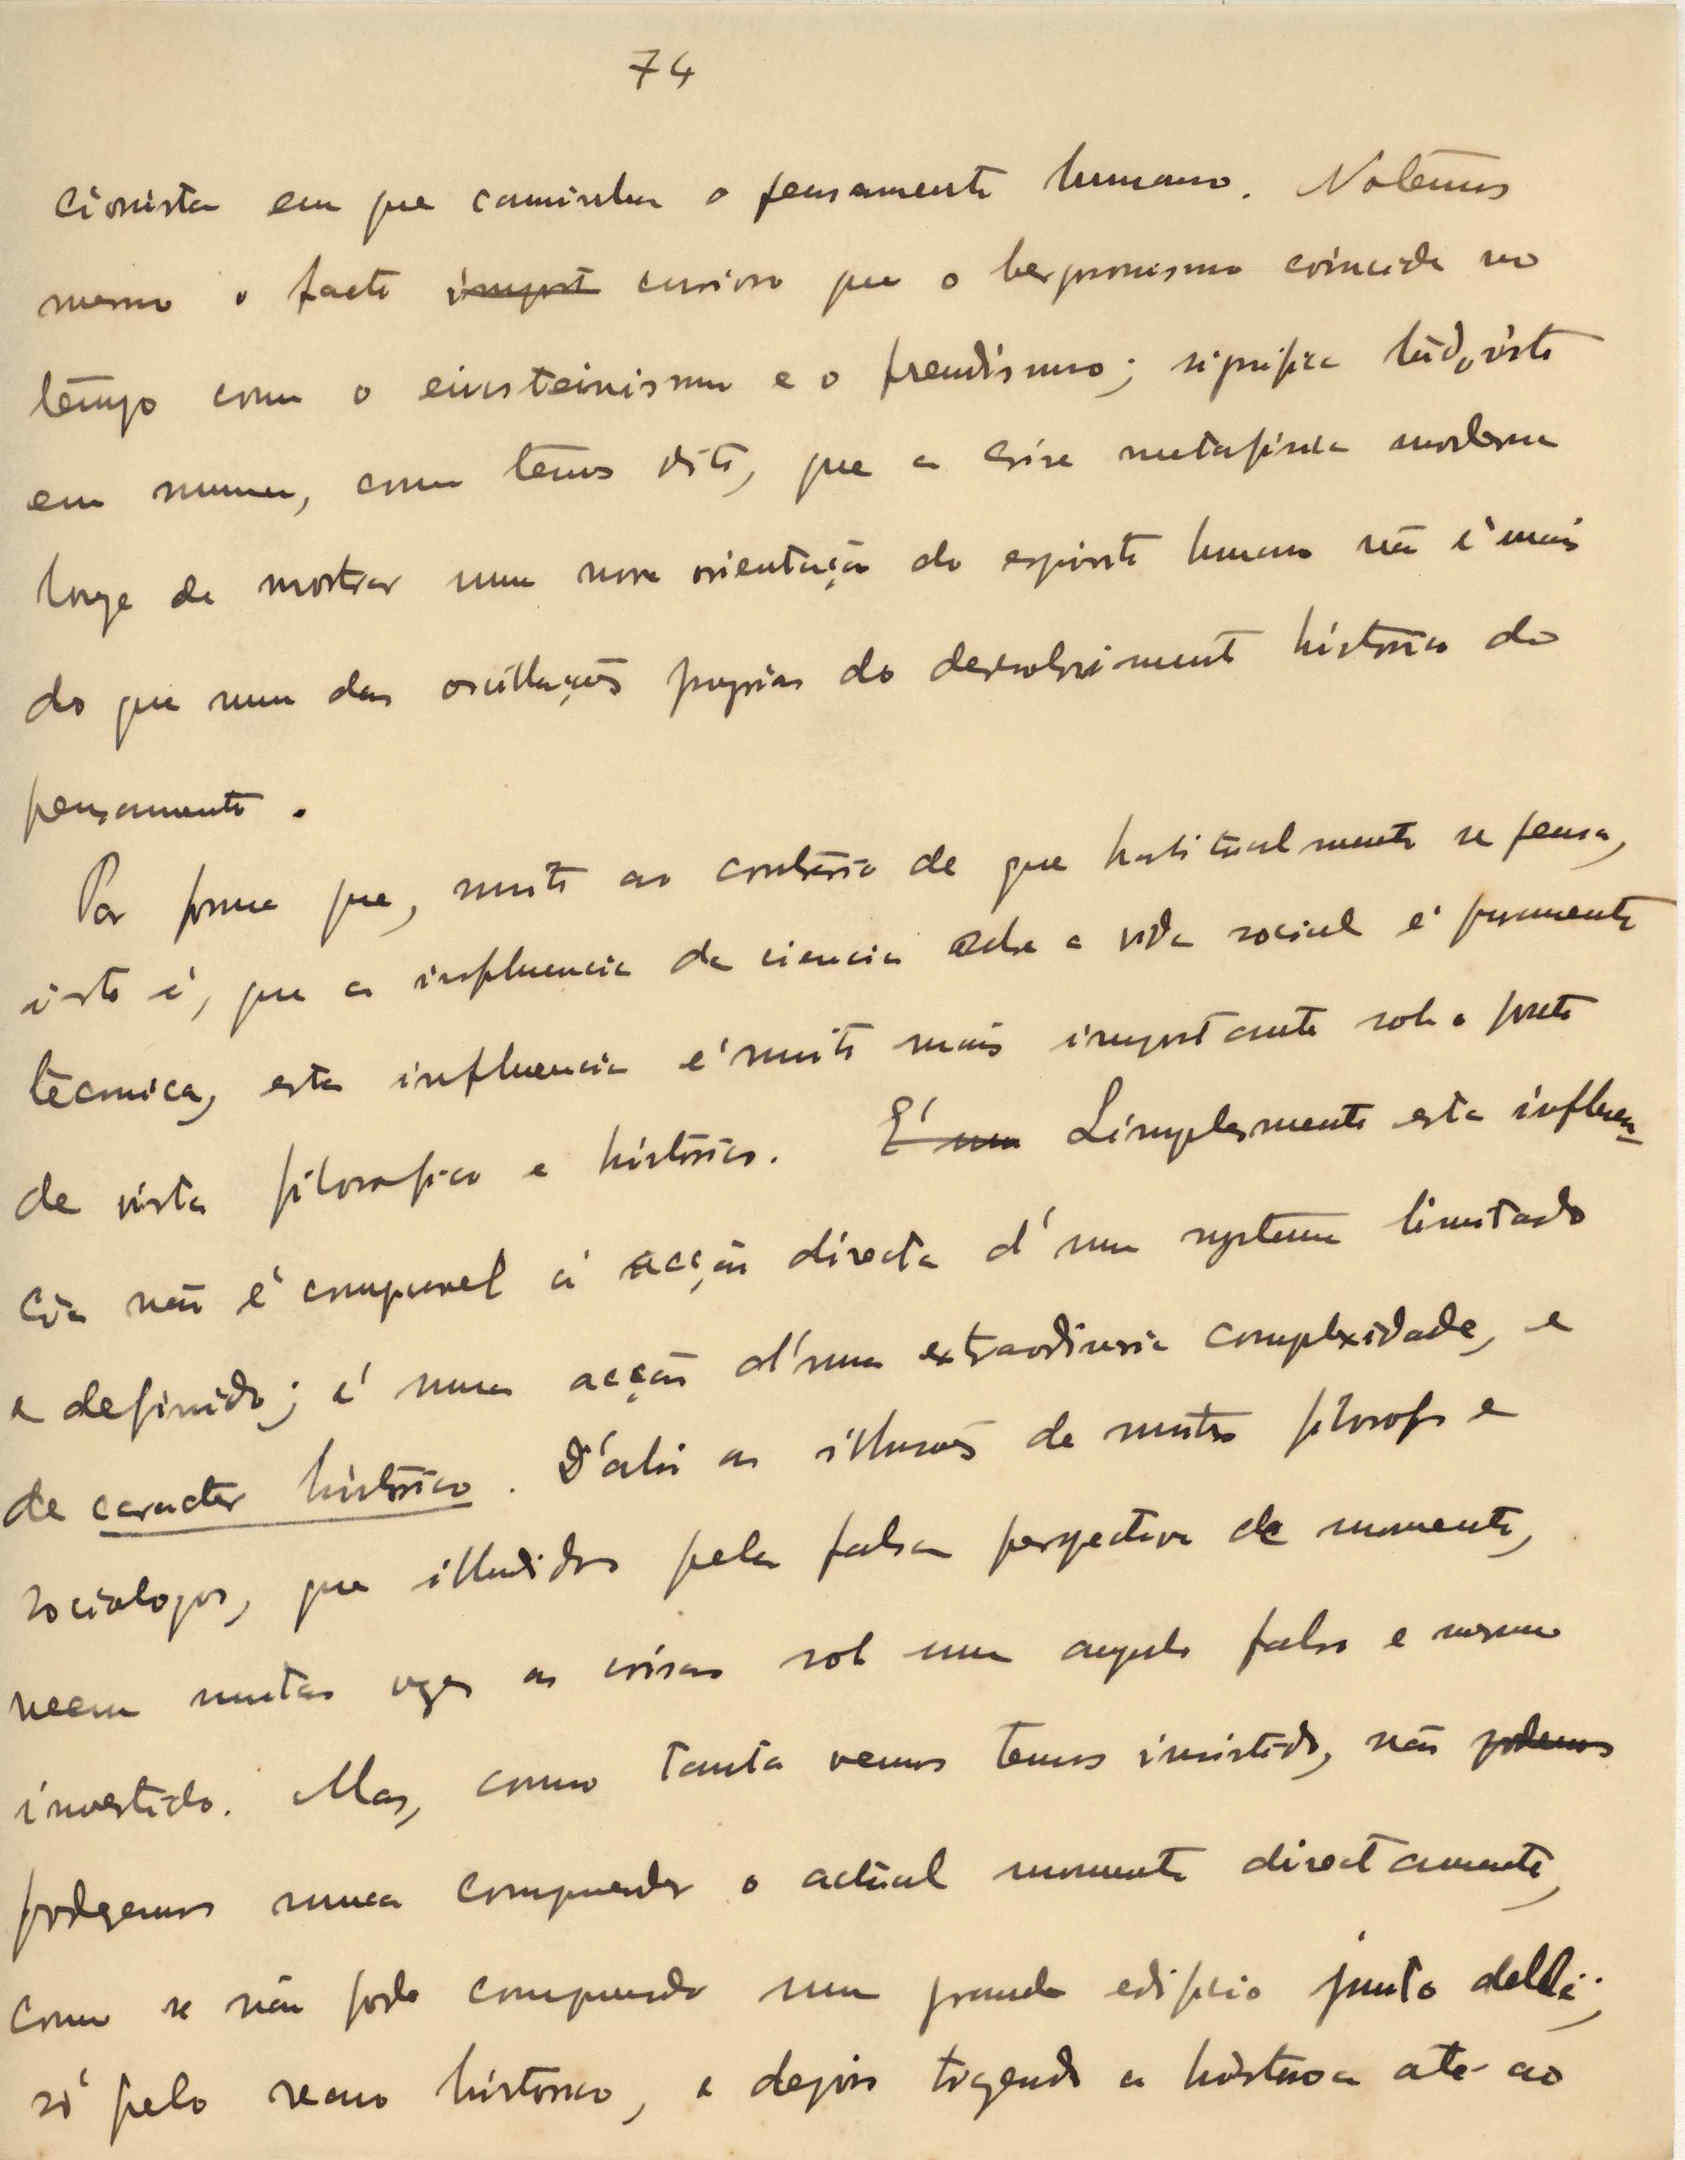 74
cionista em que caminha o pensamento humano. Notemos
mesmo o facto import curioso que o bergsonismo coincide no
tempo com o einsteinismo e o freudismo; significa tudo isto
em summa, como temos dito, que a crise metafisica moderna
longe de mostrar uma nova orientação do espirito humano não é mais
do que uma das oscillações proprias do desenvolvimento historico do
pensamento.
Por forma que, muito ao contrario do que habitualmente se pensa,
isto é, que a influencia da ciencia sobre a vida social é puramente
tecnica, esta influencia é muito mais importante sob o ponto
de vista filosofico e historico. É uma Simplesmente esta influen-
cia não é comparavel á acção directa d'um systema limitado
e definido; é uma acção d'uma extraordinaria complexidade, e
de caracter historico. D'ahi as illusões de muitos filosofos e
sociologos, que illudidos pela falsa perspectiva do momento,
veem muitas vezes as coisas sob um angulo falso e mesmo
invertido. Mas, como tanta vemos temos insistido, não podemos
podemos nunca comprehender o actual momento directamente,
como se não pode comprehender um grande edificio junto delle;
só pelo recuo historico, e depois trazendo a historia até ao